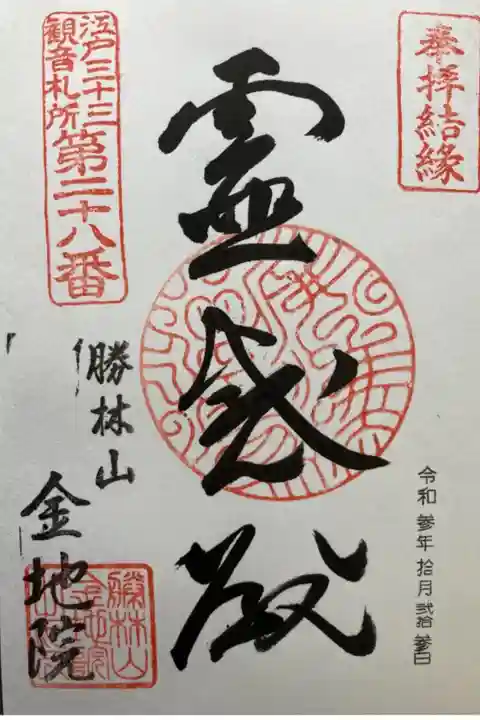 奉拝結縁
令和参年拾月弐拾参日
霊感殿
江戸三十三
観音札所
第二十八番
勝林山
金地院
勝林山
金地院